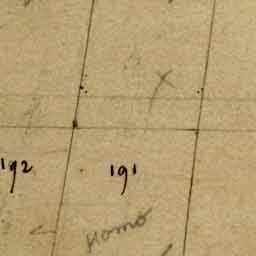 192 191
Homo